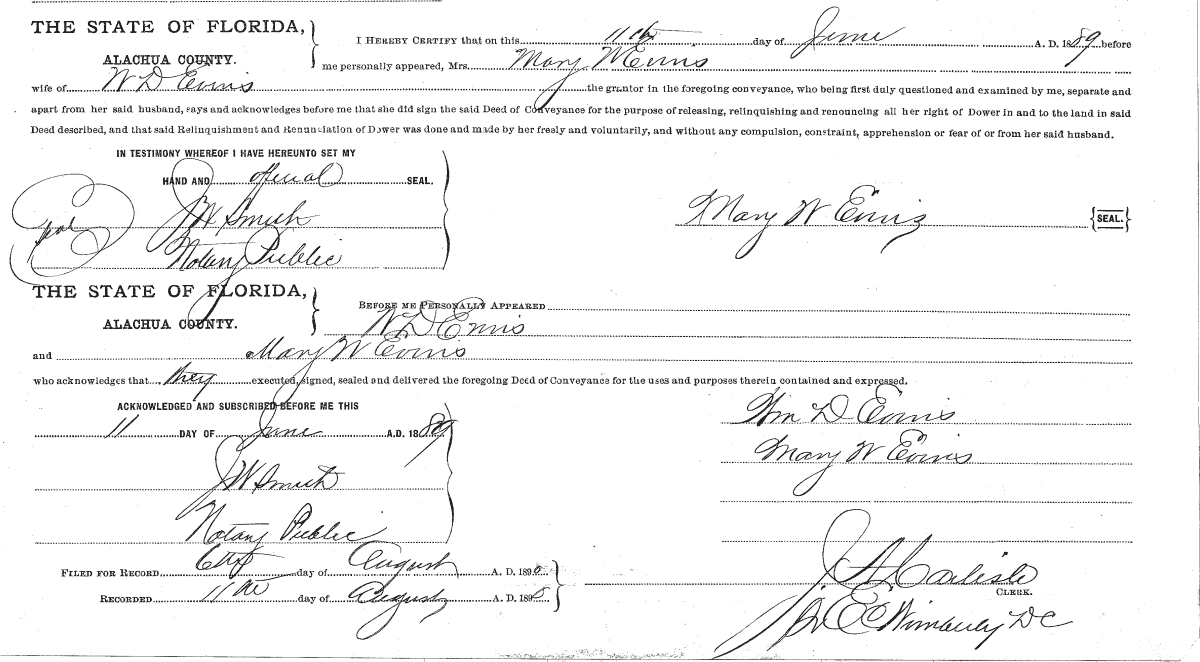 THE STATE OF FLORIDA,
ALACHUA COUNTY.
I HEREBY CERTIFY that on this 11th day of June A. D. 1889 before
me personally appeared, Mrs. Mary W Ennis
wife of W D Ennis the grantor in the foregoing conveyance, who being first duly questioned and examined by me, separate and
apart from her said husband, says and acknowledges before me that she did sign the said Deed of Conveyance for the purpose of releasing, relinquishing and renouncing all her right of Dower in and to the land in said
Deed described, and that said Relinquishment and Renunciation of Dower was done and made by her freely and voluntarily, and without any compulsion, constraint, apprehension or fear of or from her said husband.
IN TESTIMONY WHEREOF I HAVE HEREUNTO SET MY
HAND AND official SEAL.
Seal
J W Smith
Notary Public
Mary W Ennis {SEAL.}
THE STATE OF FLORIDA,
ALACHUA COUNTY.
BEFORE ME PERSONALLY APPEARED
W D Ennis
and Mary W Ennis
who acknowledges that they executed, signed, sealed and delivered the foregoing Deed of Conveyance for the uses and purposes therein contained and expressed.
ACKNOWLEDGED AND SUBSCRIBED BEFORE ME THIS
11 DAY OF June A.D. 1889
J W Smith
Notary Public
Wm D Ennis
Mary W Ennis
FILED FOR RECORD 6th day of August A. D. 189
RECORDED 11th day of August A. D. 189
J A Carlisle
CLERK.
E C Wimberly DC